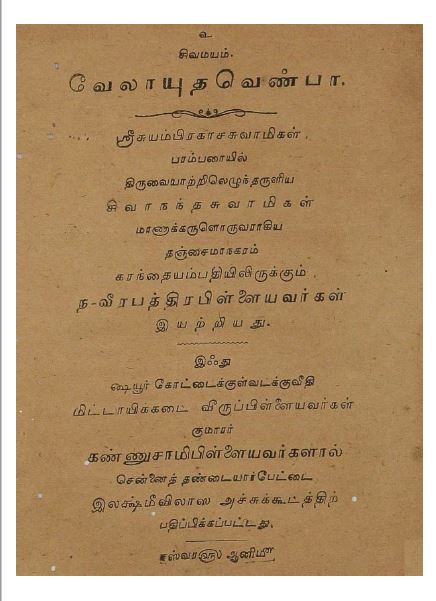 உ
சிவமயம்.
வேலாயுதவெண்பா.
ஸ்ரீசுயம்பிரகாசசுவாமிகள்,
பரம்பரையில்
திருவையாற்றிலெழுந்தருளிய
சிவாநந்தசுவாமிகள்
மாணாக்கருளொருவராகிய
தஞ்சைமாநகரம்
கரந்தையம்பதியிலிருக்கும்,
ந-வீரபத்திரபிள்ளையவர்கள்
இயற்றியது.
இஃது
ஷையூர் கோட்டைக்குள்வடக்குவீதி
மிட்டாயிக்கடை வீருப்பிள்ளையவர்கள்
குமாரர்
கண்ணுசாமிபிள்ளையவர்களால்
சென்னைத் தண்டையார்பேட்டை
இலக்ஷ்மீவிலாஸ அச்சுக்கூடத்திற்
பதிப்பிக்கப்பட்டது.
ஆனிமீ